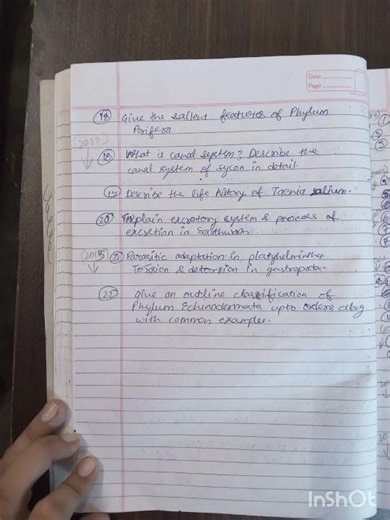 Date:
Page:
Give the salient features of Phylum
Porifera
(2022)
What is canal system? Describe the
canal system of sycon in detail.
(19) Describe the life history of Taenia solium.
(20) Explain excretory system & process of
excretion in Earthworm
(2015) Parasitic adaptation in platyhelminthes
Torsion & detorsion in gastropoda.
Give an outline classification of
Phylum Echinodermata upto orders
with common examples.
InShOt